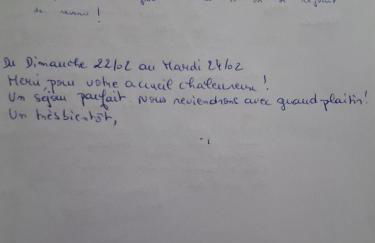 de revenir !
Du Dimanche 22/02 au Mardi 24/02
Merci pour votre accueil chaleureux !
Un séjour parfait Nous reviendrons avec grand plaisir !
Un très bientôt,